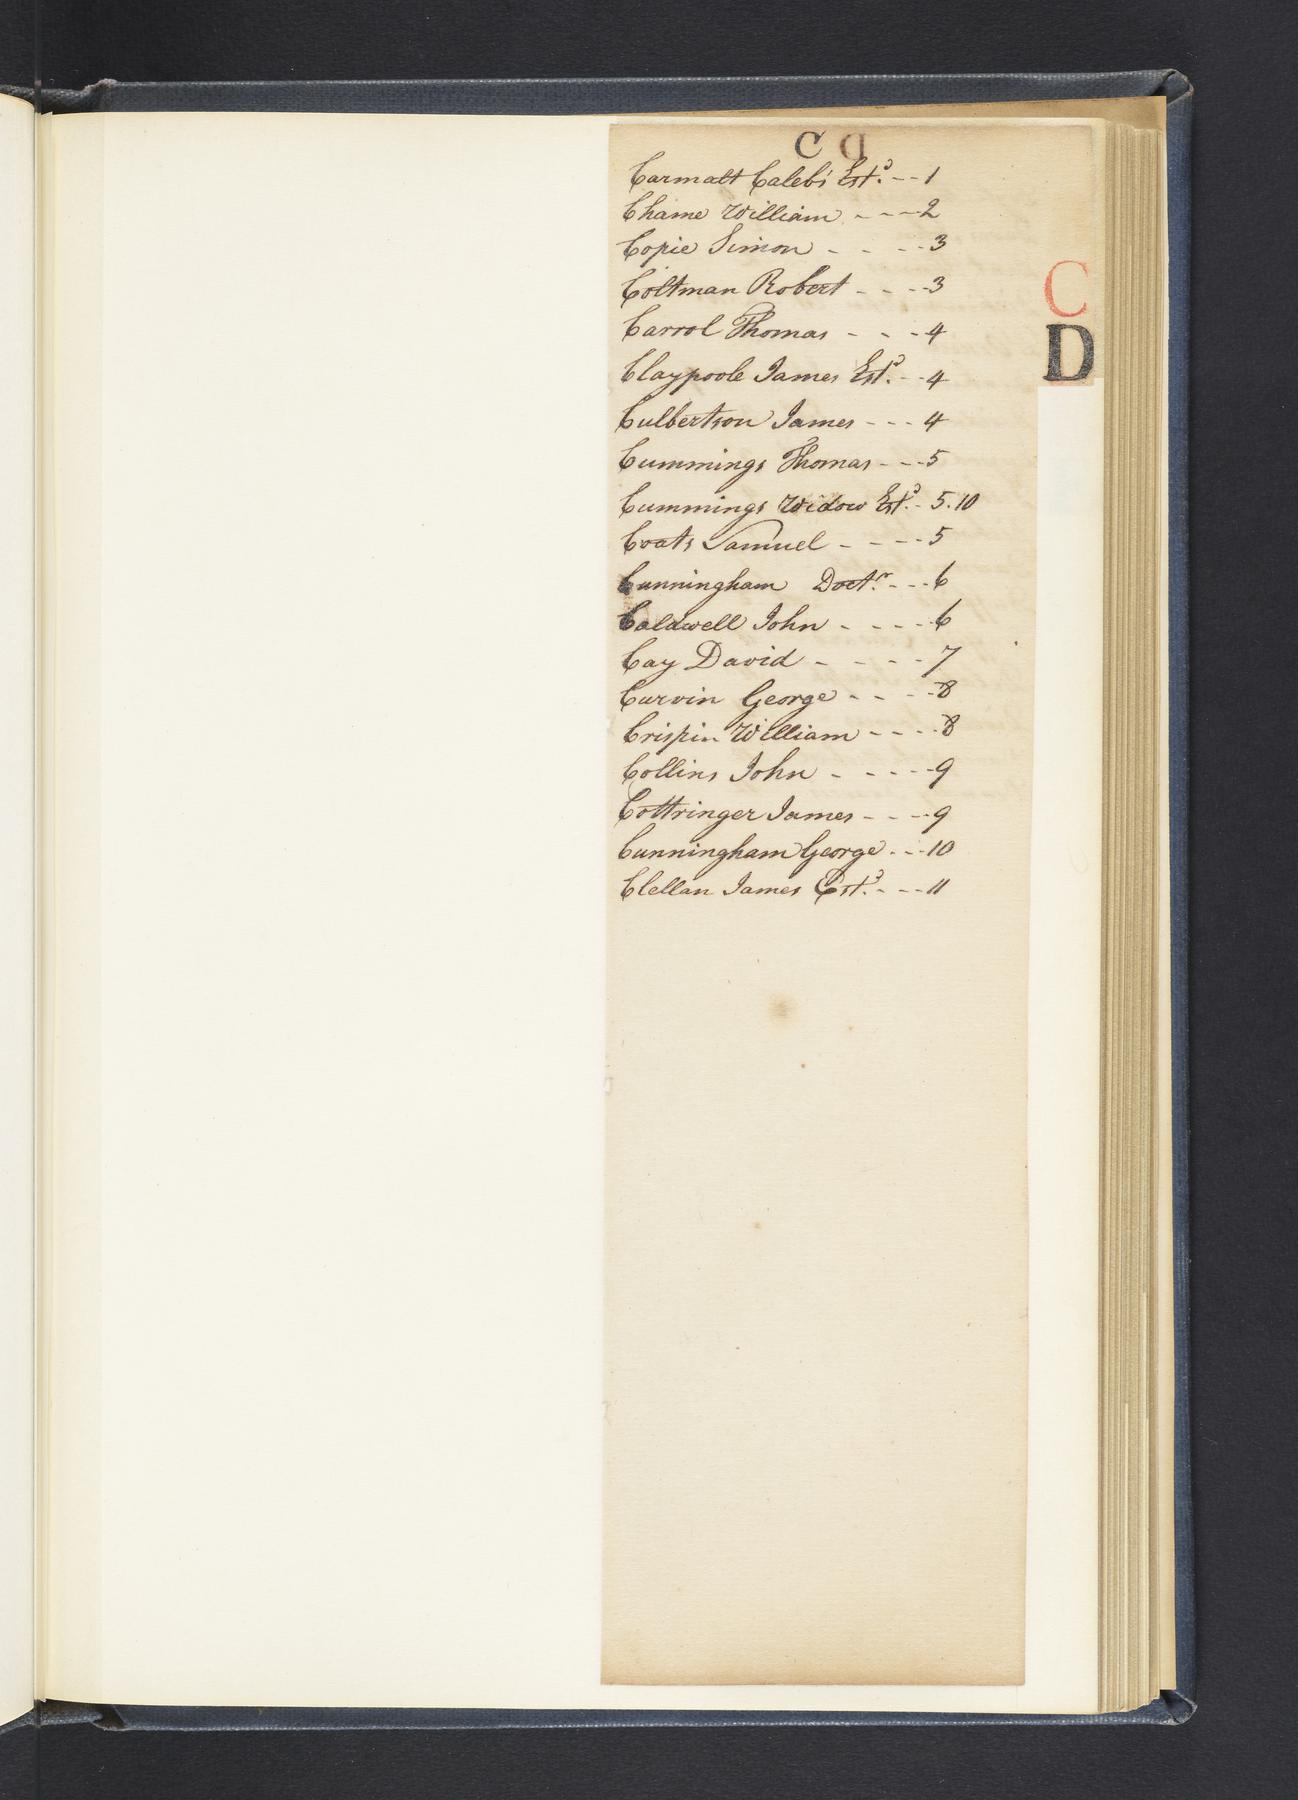 C D
Carmalt Caleb's Est.ᵉ -- 1
Chame William - - - - 2
Copie Simon - - - - 3
Coltman Robert - - - - 3
Carrol Thomas - - - 4
Claypoole James Est.ᵉ - - 4
Culbertson James - - - 4
Cummings Thomas - - - 5
Cummings Widow Est.ᵉ - 5.10
Coats Samuel - - - - 5
Cunningham Doct.ʳ - - - 6
Caldwell John - - - - 6
Cay David - - - - 7
Curvin George - - - - 8
Crispin William - - - - 8
Collins John - - - - - 9
Cottringer James - - - - 9
Cunningham George - - - 10
Clellan James Est.ᵉ - - - 11
C
D